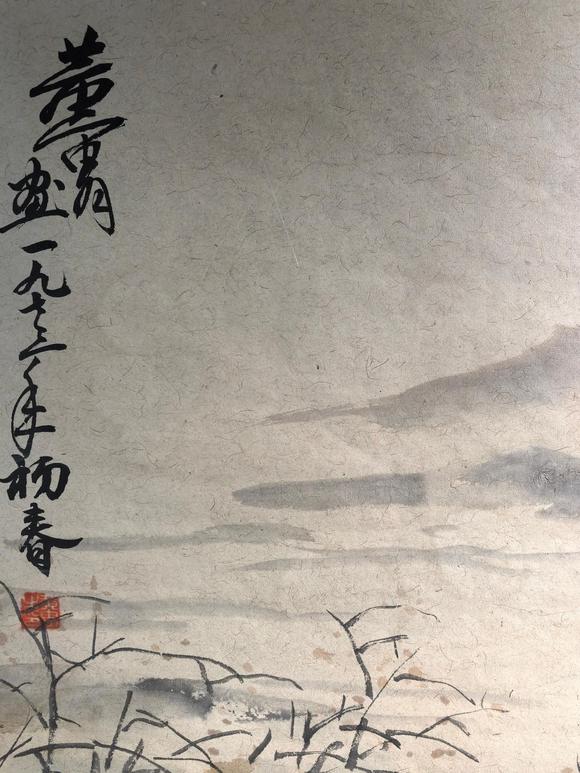 黄胄
画一九七三年初春